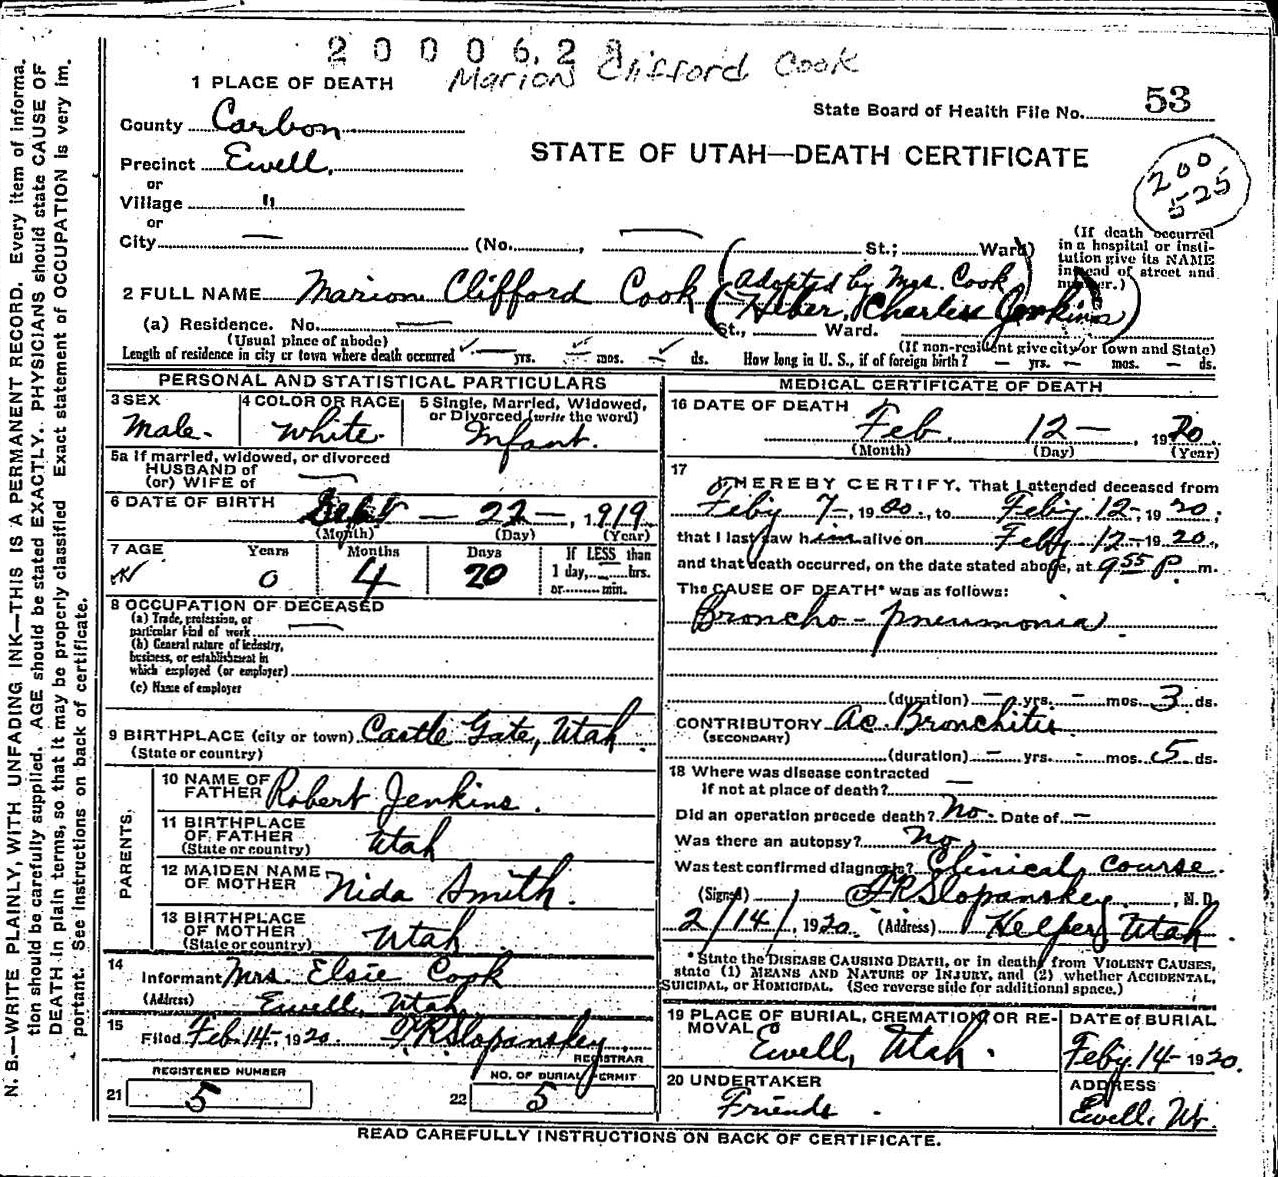 2 0 0 0 6 2
Marion Clifford Cook
1 PLACE OF DEATH
State Board of Health File No. 53
County Carbon
STATE OF UTAH—DEATH CERTIFICATE
Precinct Ewell.
or
Village "
or
City — (No. , — St.; Ward)
(If death occurred in a hospital or institution give its NAME instead of street and number.)
200
525
2 FULL NAME Marion Clifford Cook (Adopted by Mrs. Cook
Heber, Charles Jenkins)
(a) Residence. No. — St., Ward.
(Usual place of abode) (If non-resident give city or town and State)
Length of residence in city or town where death occurred — yrs. — mos. ds. How long in U. S., if of foreign birth? — yrs. — mos. — ds.
PERSONAL AND STATISTICAL PARTICULARS
3 SEX
Male.
4 COLOR OR RACE
White
5 Single, Married, Widowed, or Divorced (write the word)
Infant.
5a If married, widowed, or divorced
HUSBAND of
(or) WIFE of —
6 DATE OF BIRTH Sept — 22 —, 1919.
(Month) (Day) (Year)
7 AGE Years Months Days If LESS than
0 4 20 1 day, — hrs.
or min.
8 OCCUPATION OF DECEASED
(a) Trade, profession, or
particular kind of work —
(b) General nature of industry,
business, or establishment in
which employed (or employer)
(c) Name of employer
9 BIRTHPLACE (city or town) Castle Gate, Utah.
(State or country)
PARENTS.
10 NAME OF FATHER Robert Jenkins.
11 BIRTHPLACE OF FATHER Utah
(State or country)
12 MAIDEN NAME OF MOTHER Nida Smith.
13 BIRTHPLACE OF MOTHER Utah
(State or country)
14
Informant Mrs. Elsie Cook
(Address) Ewell, Utah
15
Filed Feb. 14-, 1920. F.R. Slopanskey
REGISTRAR
REGISTERED NUMBER
21 5
NO. OF BURIAL PERMIT
22 5
MEDICAL CERTIFICATE OF DEATH
16 DATE OF DEATH Feb. 12 —, 1920.
(Month) (Day) (Year)
17
I HEREBY CERTIFY, That I attended deceased from
Feby 7-, 1920, to Feby. 12-, 1920;
that I last saw him alive on Feby 12-, 1920,
and that death occurred, on the date stated above, at 9 55 P. m.
The CAUSE OF DEATH* was as follows:
Broncho-pneumonia.
(duration) — yrs. - mos. 3 ds.
CONTRIBUTORY Ac. Bronchitis.
(SECONDARY)
(duration) — yrs. — mos. 5 ds.
18 Where was disease contracted
if not at place of death? —
Did an operation precede death? No. Date of —
Was there an autopsy? No.
Was test confirmed diagnosis? Clinical course.
(Signed) F.R. Slopanskey, M. D.
2/14/, 1920. (Address) Helper, Utah.
*State the DISEASE CAUSING DEATH, or in deaths from VIOLENT CAUSES,
state (1) MEANS AND NATURE OF INJURY, and (2) whether ACCIDENTAL,
SUICIDAL, or HOMICIDAL. (See reverse side for additional space.)
19 PLACE OF BURIAL, CREMATION, OR REMOVAL
Ewell, Utah.
DATE of BURIAL
Feby. 14- 1920.
20 UNDERTAKER
Friends.
ADDRESS
Ewell. Ut.
READ CAREFULLY INSTRUCTIONS ON BACK OF CERTIFICATE.
N. B.—WRITE PLAINLY, WITH UNFADING INK—THIS IS A PERMANENT RECORD. Every item of informa-
tion should be carefully supplied. AGE should be stated EXACTLY. PHYSICIANS should state CAUSE OF
DEATH in plain terms, so that it may be properly classified Exact statement of OCCUPATION is very im-
portant. See instructions on back of certificate.